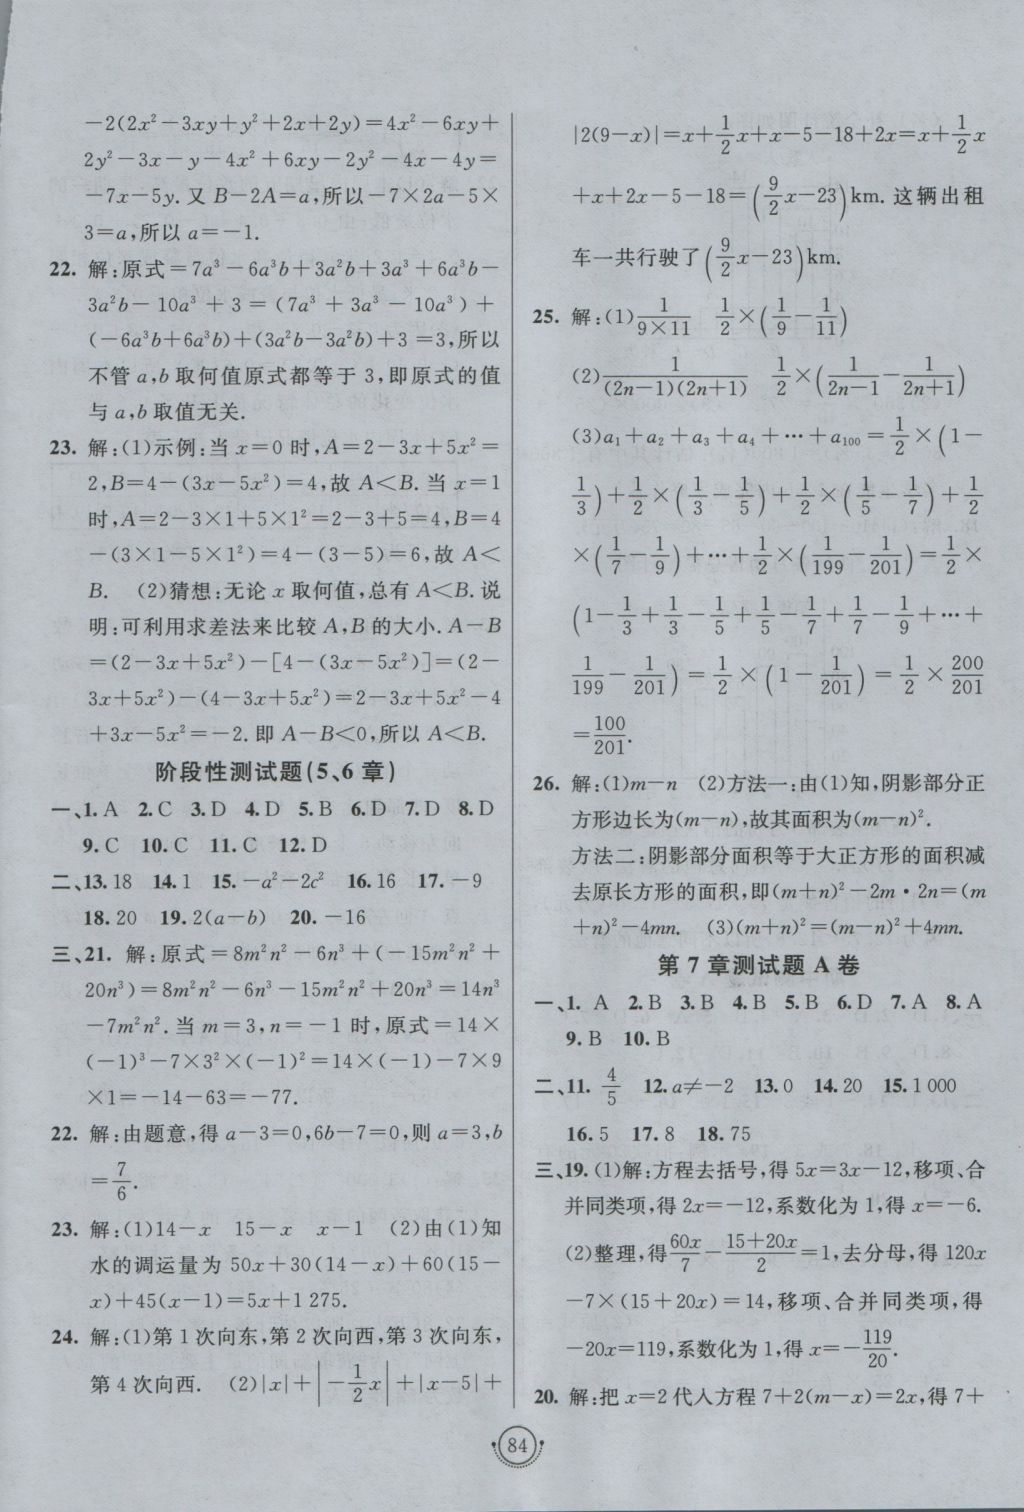 −2(2x²−3xy+y²+2x+2y)=4x²−6xy+
2y²−3x−y−4x²+6xy−2y²−4x−4y=
−7x−5y. 又 B−2A=a,所以−7×2a−5×
3=a,所以 a=−1.
22. 解:原式=7a³−6a³b+3a²b+3a³+6a³b−
3a²b−10a³+3=(7a³+3a³−10a³)+
(−6a³b+6a³b)+(3a²b−3a²b)+3=3,所以
不管 a,b 取何值原式都等于 3,即原式的值
与 a,b 取值无关.
23. 解:(1)示例:当 x=0 时,A=2−3x+5x²=
2,B=4−(3x−5x²)=4,故 A<B. 当 x=1
时,A=2−3×1+5×1²=2−3+5=4,B=4
−(3×1−5×1²)=4−(3−5)=6,故 A<
B. (2)猜想:无论 x 取何值,总有 A<B. 说
明:可利用求差法来比较 A,B 的大小. A−B
=(2−3x+5x²)−[4−(3x−5x²)]=(2−
3x+5x²)−(4−3x+5x²)=2−3x+5x²−4
+3x−5x²=−2. 即 A−B<0,所以 A<B.
阶段性测试题(5、6 章)
一、1. A 2. C 3. D 4. D 5. B 6. D 7. D 8. D
9. C 10. C 11. C 12. D
二、13. 18 14. 1 15. −a²−2c² 16. 16 17. −9
18. 20 19. 2(a−b) 20. −16
三、21. 解:原式=8m²n²−6n³+(−15m²n²+
20n³)=8m²n²−6n³−15m²n²+20n³=14n³
−7m²n². 当 m=3,n=−1 时,原式=14×
(−1)³−7×3²×(−1)²=14×(−1)−7×9
×1=−14−63=−77.
22. 解:由题意,得 a−3=0,6b−7=0,则 a=3,b
=7/6.
23. 解:(1)14−x 15−x x−1 (2)由(1)知
水的调运量为 50x+30(14−x)+60(15−
x)+45(x−1)=5x+1 275.
24. 解:(1)第 1 次向东,第 2 次向西,第 3 次向东,
第 4 次向西. (2)|x|+|−1/2 x|+|x−5|+
|2(9−x)|=x+1/2 x+x−5−18+2x=x+1/2 x
+x+2x−5−18=(9/2 x−23)km. 这辆出租
车一共行驶了(9/2 x−23)km.
25. 解:(1)1/(9×11) 1/2×(1/9−1/11)
(2)1/((2n−1)(2n+1)) 1/2×(1/(2n−1)−1/(2n+1))
(3)a₁+a₂+a₃+a₄+⋯+a₁₀₀=1/2×(1−
1/3)+1/2×(1/3−1/5)+1/2×(1/5−1/7)+1/2
×(1/7−1/9)+⋯+1/2×(1/199−1/201)=1/2×
(1−1/3+1/3−1/5+1/5−1/7+1/7−1/9+⋯+
1/199−1/201)=1/2×(1−1/201)=1/2×200/201
=100/201.
26. 解:(1)m−n (2)方法一:由(1)知,阴影部分正
方形边长为(m−n),故其面积为(m−n)².
方法二:阴影部分面积等于大正方形的面积减
去原长方形的面积,即(m+n)²−2m·2n=(m
+n)²−4mn. (3)(m+n)²=(m−n)²+4mn.
第 7 章测试题 A 卷
一、1. A 2. B 3. B 4. B 5. B 6. D 7. A 8. A
9. B 10. B
二、11. 4/5 12. a≠−2 13. 0 14. 20 15. 1 000
16. 5 17. 8 18. 75
三、19. (1)解:方程去括号,得 5x=3x−12,移项、合
并同类项,得 2x=−12,系数化为 1,得 x=−6.
(2)整理,得60x/7−(15+20x)/2=1,去分母,得 120x
−7×(15+20x)=14,移项、合并同类项,得
−20x=119,系数化为 1,得 x=−119/20.
20. 解:把 x=2 代入方程 7+2(m−x)=2x,得 7+
84